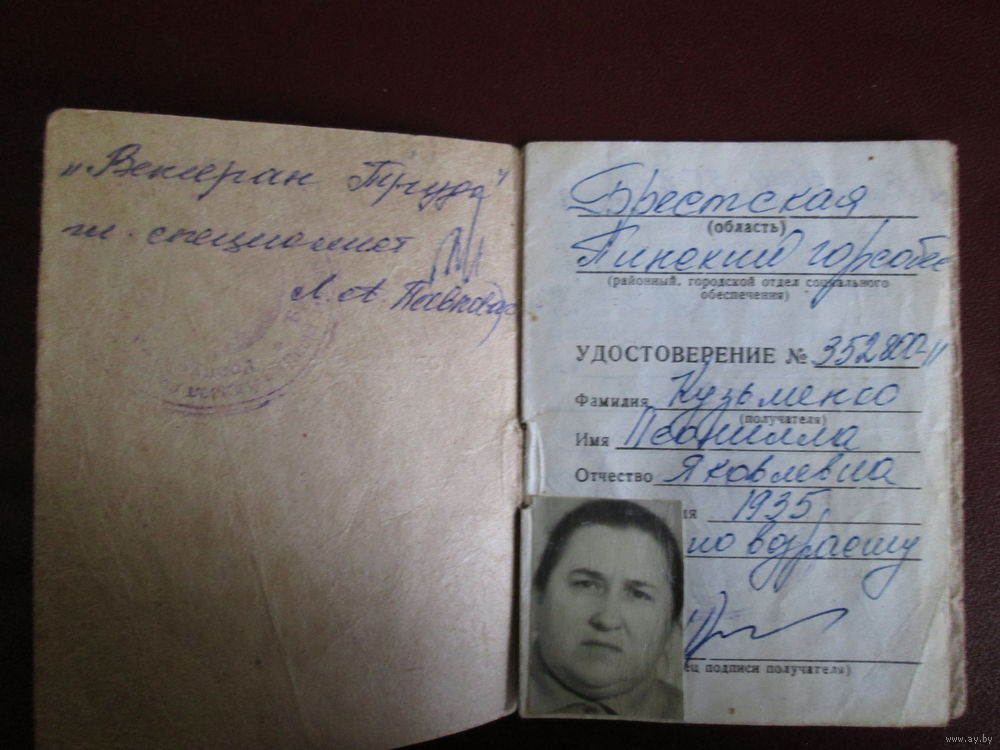 „Ветеран Труда"
гл. специалист
Л. А. Павлова
Брестская
(область)
Пинский горсобес
(районный, городской отдел социального
обеспечения)
УДОСТОВЕРЕНИЕ № 352800-11
Фамилия Кузьменко
(получателя)
Имя Леонилла
Отчество Яковлевна
ия 1935
по возрасту
ец подписи получателя)
www.ay.by